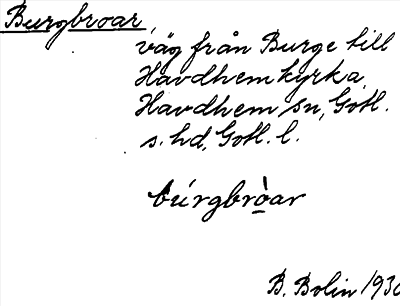 Burgbroar,
väg från Burge till
Havdhem kyrka,
Havdhem sn, Gotl.
s. hd, Gotl. l.
búrgbrò̲ar
B. Bolin 1930